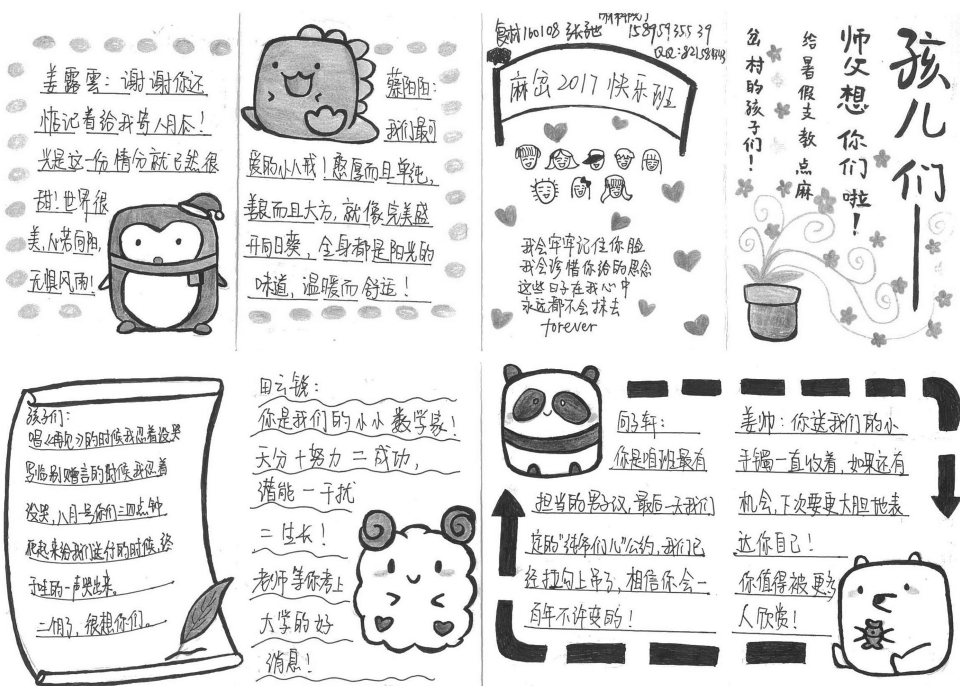 姜露雲：谢谢你还
惦记着给我寄八月本！
光是这一份情分就已然很
甜！世界很
美，心若向阳，
无惧风雨！
蔡阳阳：
我们最可
爱的小八戒！憨厚而且单纯，
善良而且大方，就像完美盛
开向日葵，全身都是阳光的
味道，温暖而舒适！
食材160108 张弛 15895935539
麻岔2017快乐班
我会牢牢记住你脸
我会珍惜你给的思念
这些日子在我心中
永远都不会抹去
forever
孩儿们——
师父想你们啦！
给暑假支教点麻
岔村的孩子们！
孩子们：
唱《再见》的时候我忍着没哭
写临别赠言的时候我忍着
没哭，八月一号你们三四点钟
爬起来给我们送行的时候，终
于哇的一声哭出来。
二个月了，很想你们。
田云锐：
你是我们的小小数学家！
天分+努力=成功，
潜能－干扰
=生长！
老师等你考上
大学的好
消息！
向子轩：
你是咱班最有
担当的男子汉，最后一天我们
定的“纯爷们儿”公约，我们已
经拉勾上吊了，相信你会一
百年不许变的！
姜帅：你送我们的小
手镯一直收着，如果还有
机会，下次要更大胆地表
达你自己！
你值得被更多
人欣赏！